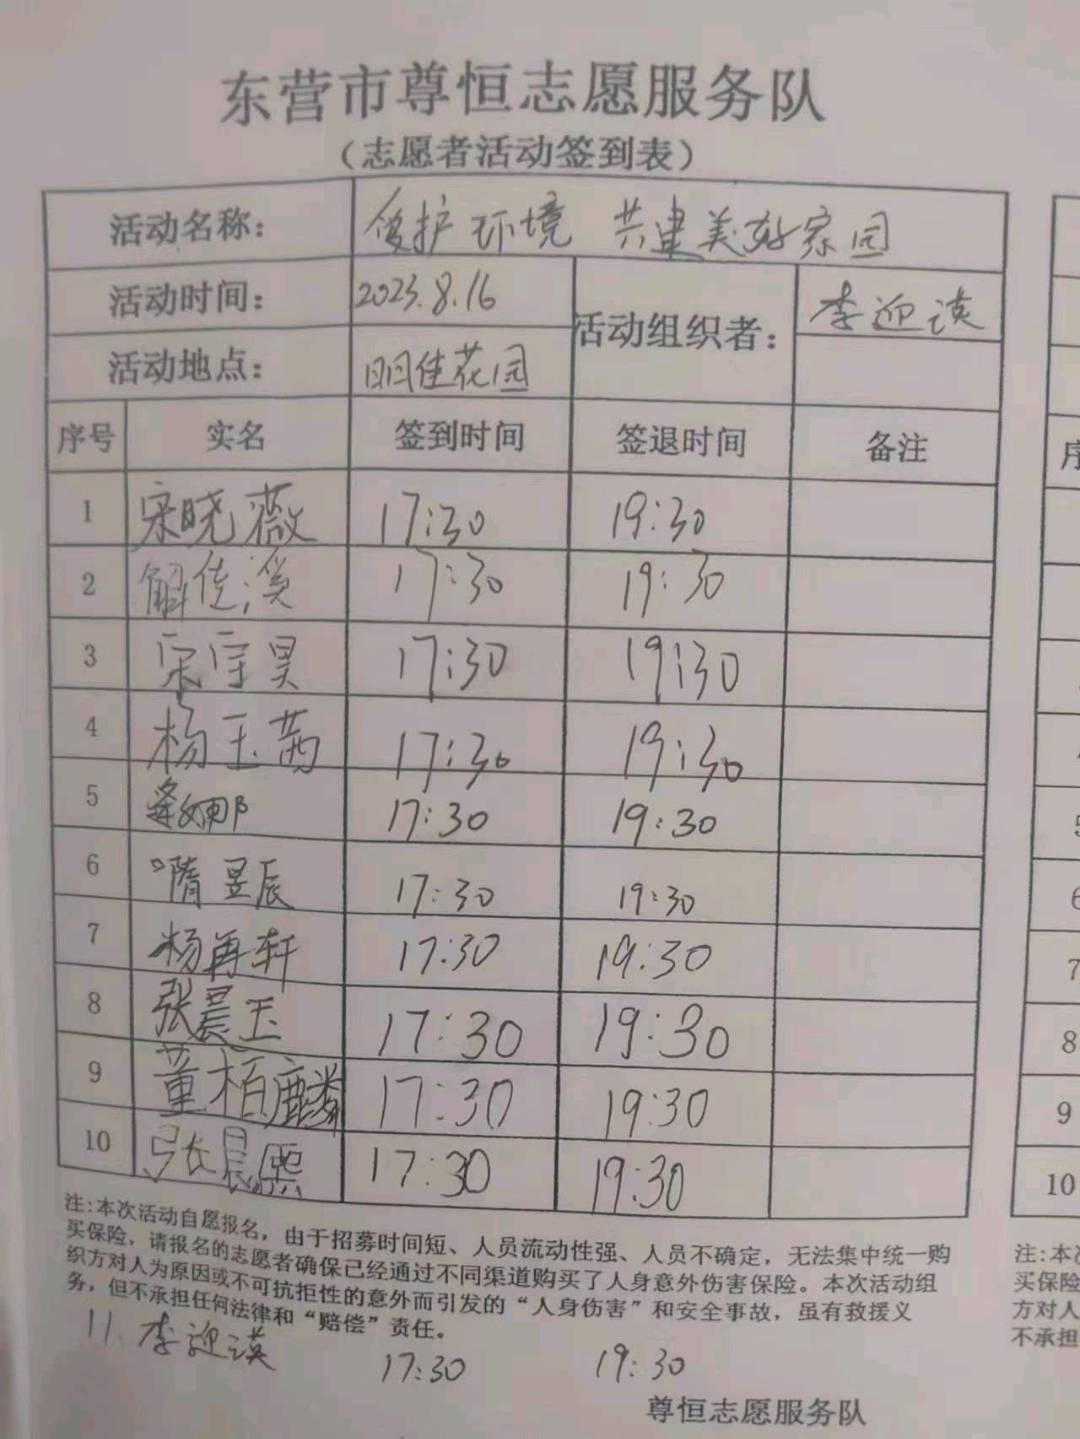 东营市尊恒志愿服务队
（志愿者活动签到表）
活动名称： 爱护环境 共建美好家园
活动时间： 2023.8.16 活动组织者： 李迎
活动地点： 明佳花园
序号 实名 签到时间 签退时间 备注
1 宋晓薇 17:30 19:30
2 解佳溪 17:30 19:30
3 宋宇昊 17:30 19:30
4 杨玉茜 17:30 19:30
5 娜 17:30 19:30
6 隋昱辰 17:30 19:30
7 杨再轩 17:30 19:30
8 张晨玉 17:30 19:30
9 董栢麟 17:30 19:30
10 张晨熙 17:30 19:30
注:本次活动自愿报名，由于招募时间短、人员流动性强、人员不确定，无法集中统一购
买保险，请报名的志愿者确保已经通过不同渠道购买了人身意外伤害保险。本次活动组
织方对人为原因或不可抗拒性的意外而引发的“人身伤害”和安全事故，虽有救援义
务，但不承担任何法律和“赔偿”责任。
11. 李迎 17:30 19:30
尊恒志愿服务队
序
5
6
7
8
9
10
注:本
买保险
方对人
不承担